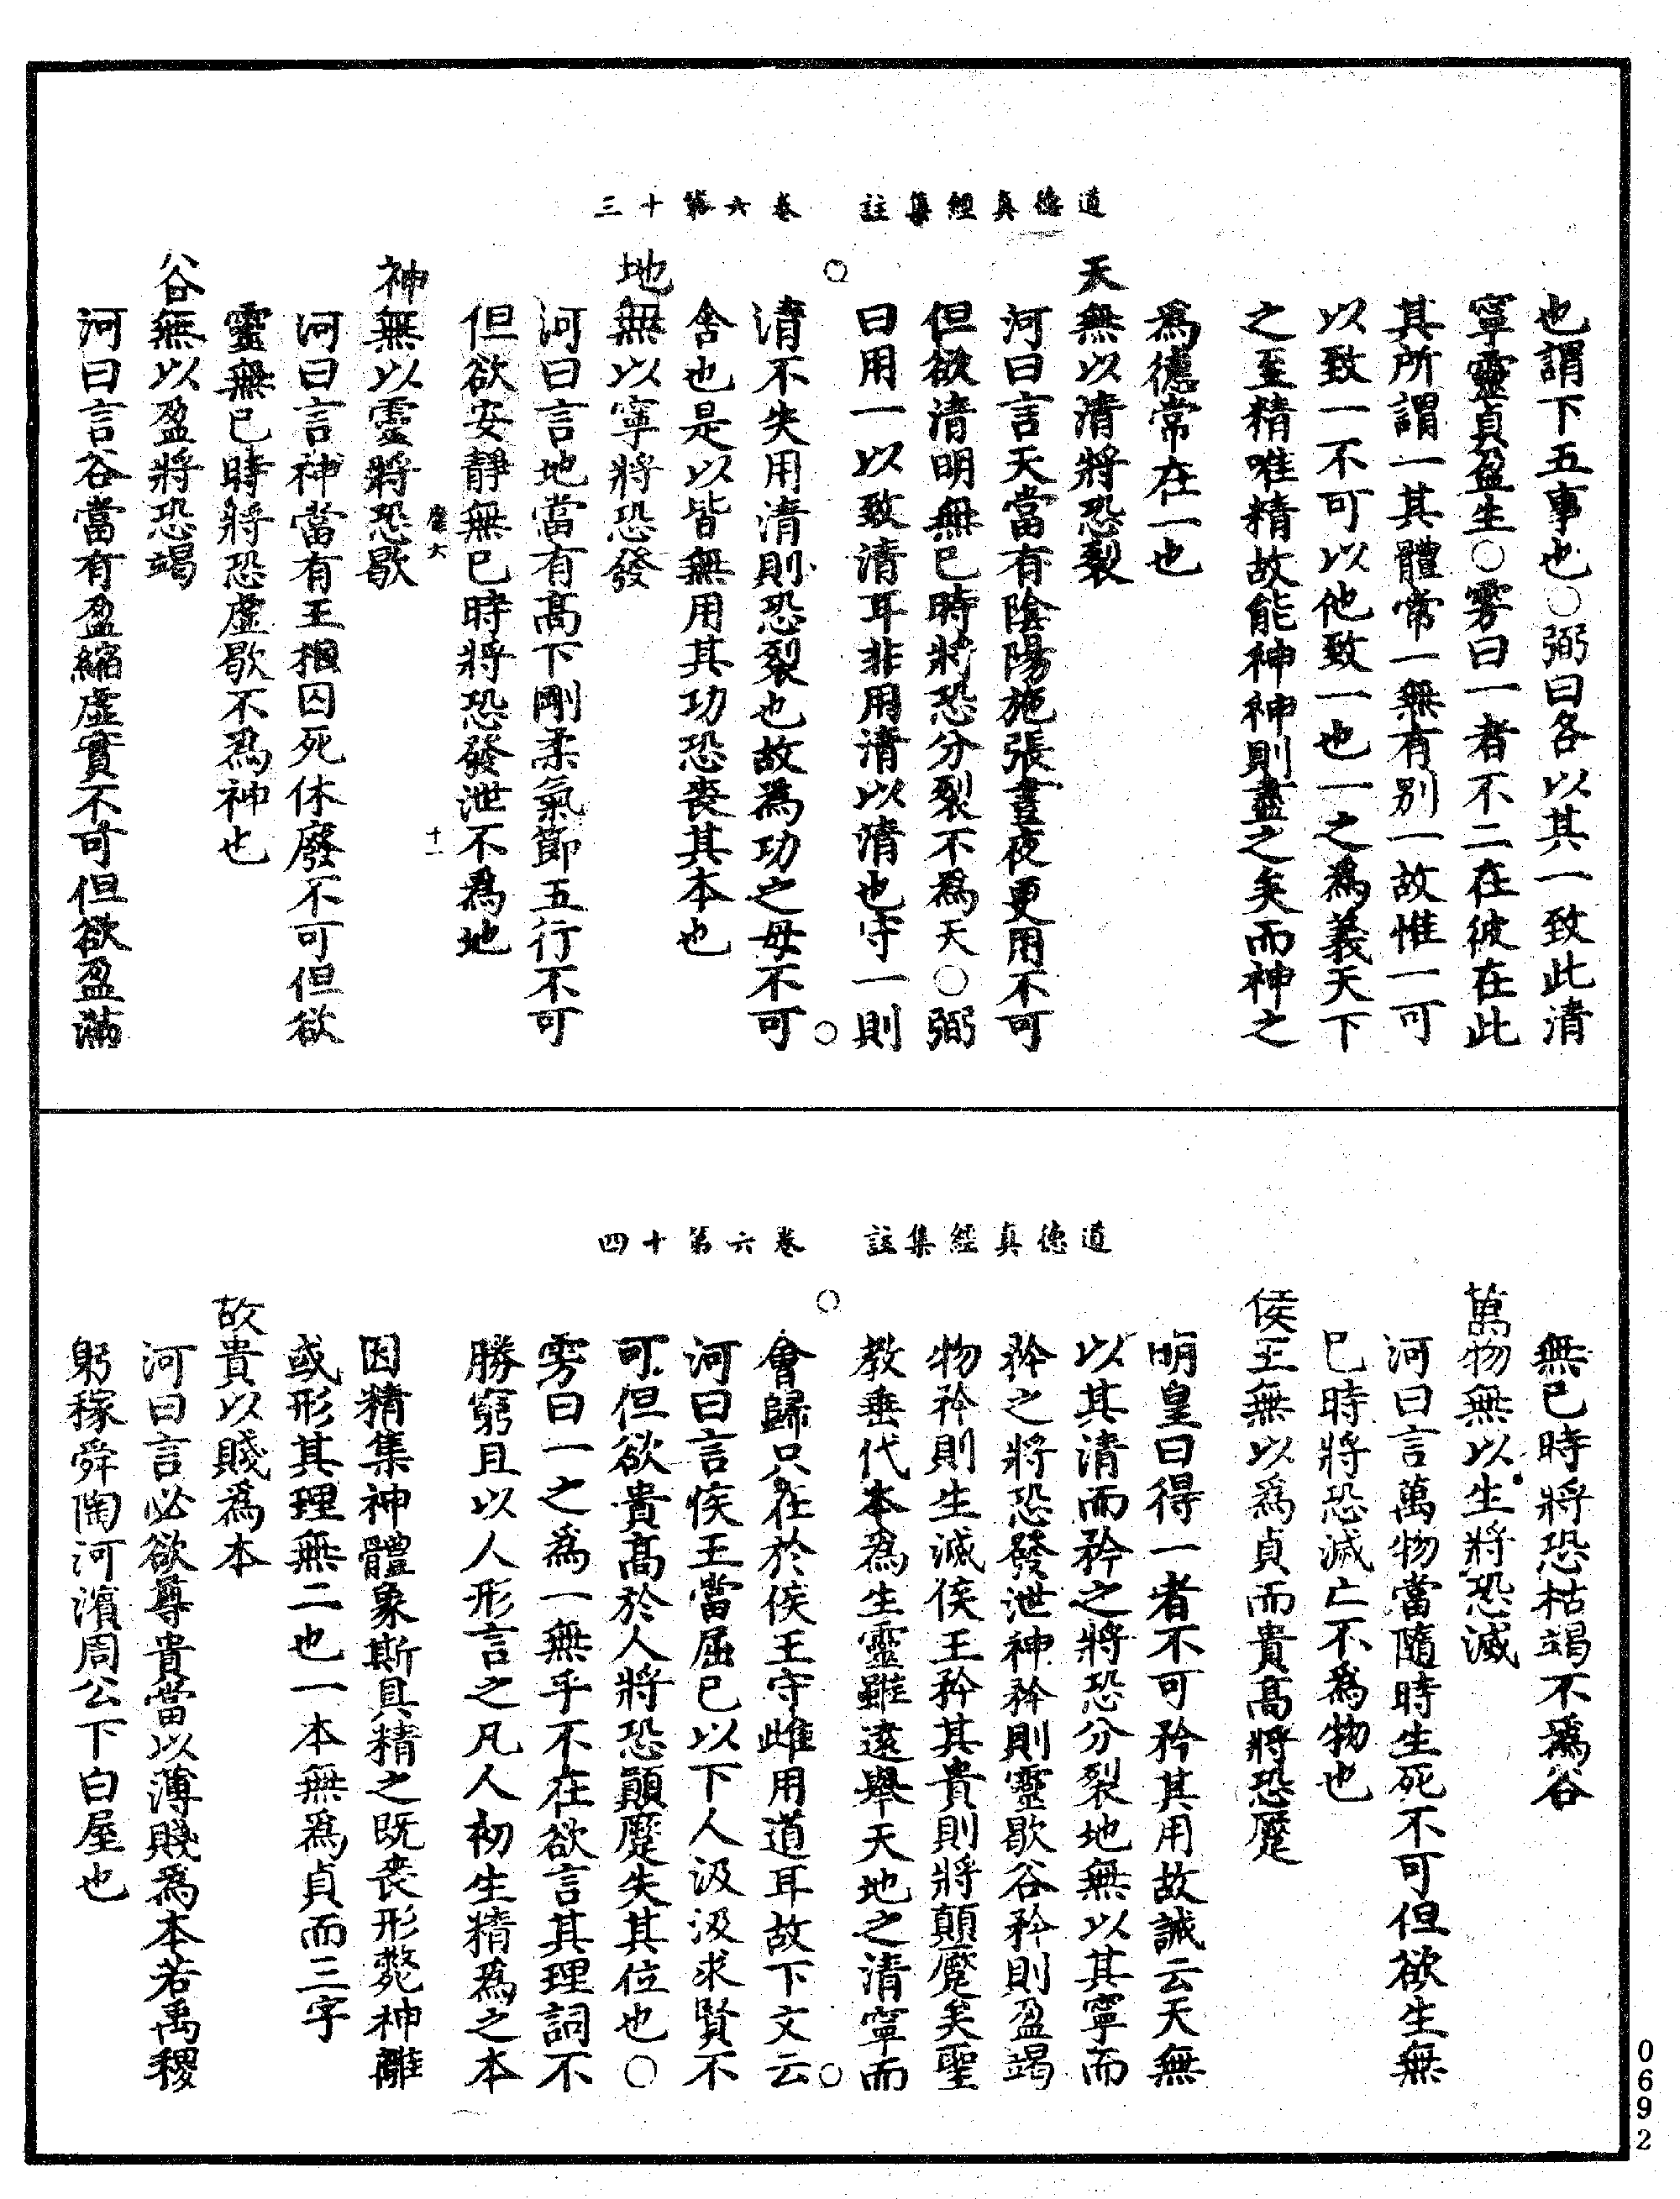 道德真經集註　卷六第十三
也謂下五事也○弼曰各以其一致此清
寧靈貞盈生○雱曰一者不二在彼在此
其所謂一其體常一無有別一故惟一可
以致一不可以他致一也一之為義天下
之至精唯精故能神神則盡之矣而神之
為德常在一也
天無以清將恐裂
河曰言天當有陰陽施張晝夜更用不可
但欲清明無已時將恐分裂不為天○弼
曰用一以致清耳非用清以清也守一則
清不失用清則恐裂也故為功之母不可
舍也是以皆無用其功恐喪其本也
地無以寧將恐發
河曰言地當有高下剛柔氣節五行不可
但欲安靜無已時將恐發泄不為地
神無以靈將恐歇
十一
河曰言神當有王相囚死休廢不可但欲
靈無已時將恐虛歇不為神也
谷無以盈將恐竭
河曰言谷當有盈縮虛實不可但欲盈滿
道德真經集註　卷六第十四
無已時將恐枯竭不為谷
萬物無以生將恐滅
河曰言萬物當隨時生死不可但欲生無
已時將恐滅亡不為物也
侯王無以為貞而貴高將恐蹷
明皇曰得一者不可矜其用故誡云天無
以其清而矜之將恐分裂地無以其寧而
矜之將恐發泄神矜則靈歇谷矜則盈竭
物矜則生滅侯王矜其貴則將顛蹷矣聖
教垂代本為生靈雖遠舉天地之清寧而
會歸只在於侯王守雌用道耳故下文云
河曰言侯王當屈己以下人汲汲求賢不
可但欲貴高於人將恐顛蹷失其位也○
雱曰一之為一無乎不在欲言其理詞不
勝窮且以人形言之凡人初生精為之本
因精集神體象斯具精之既喪形斃神離
或形其理無二也一本無為貞而三字
故貴以賤為本
河曰言必欲尊貴當以薄賤為本若禹稷
躬稼舜陶河濱周公下白屋也
0692